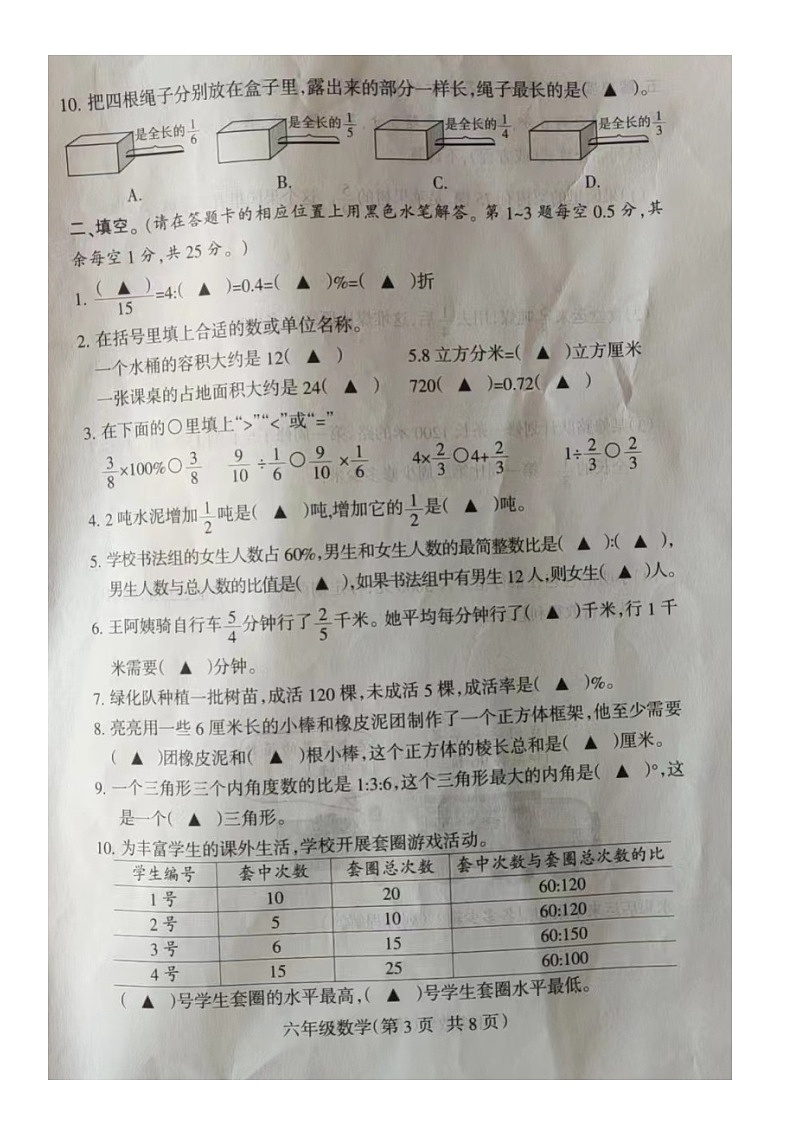 10. 把四根绳子分别放在盒子里,露出来的部分一样长,绳子最长的是( ▲ )。
是全长的1/6 是全长的1/5 是全长的1/4 是全长的1/3
A. B. C. D.
二、填空。(请在答题卡的相应位置上用黑色水笔解答。第1~3题每空0.5分,其
余每空1分,共25分。)
1. ( ▲ )/15=4:( ▲ )=0.4=( ▲ )%=( ▲ )折
2. 在括号里填上合适的数或单位名称。
一个水桶的容积大约是12( ▲ ) 5.8立方分米=( ▲ )立方厘米
一张课桌的占地面积大约是24( ▲ ) 720( ▲ )=0.72( ▲ )
3. 在下面的○里填上“>”“<”或“=”
3/8×100%○3/8 9/10÷1/6○9/10×1/6 4×2/3○4+2/3 1÷2/3○2/3
4. 2吨水泥增加1/2吨是( ▲ )吨,增加它的1/2是( ▲ )吨。
5. 学校书法组的女生人数占60%,男生和女生人数的最简整数比是( ▲ ):( ▲ ),
男生人数与总人数的比值是( ▲ ),如果书法组中有男生12人,则女生( ▲ )人。
6. 王阿姨骑自行车5/4分钟行了2/5千米。她平均每分钟行了( ▲ )千米,行1千
米需要( ▲ )分钟。
7. 绿化队种植一批树苗,成活120棵,未成活5棵,成活率是( ▲ )%。
8. 亮亮用一些6厘米长的小棒和橡皮泥团制作了一个正方体框架,他至少需要
( ▲ )团橡皮泥和( ▲ )根小棒,这个正方体的棱长总和是( ▲ )厘米。
9. 一个三角形三个内角度数的比是1:3:6,这个三角形最大的内角是( ▲ )°,这
是一个( ▲ )三角形。
10. 为丰富学生的课外生活,学校开展套圈游戏活动。
学生编号 套中次数 套圈总次数 套中次数与套圈总次数的比
1号 10 20 60:120
2号 5 10 60:120
3号 6 15 60:150
4号 15 25 60:100
( ▲ )号学生套圈的水平最高,( ▲ )号学生套圈水平最低。
六年级数学(第3页 共8页)